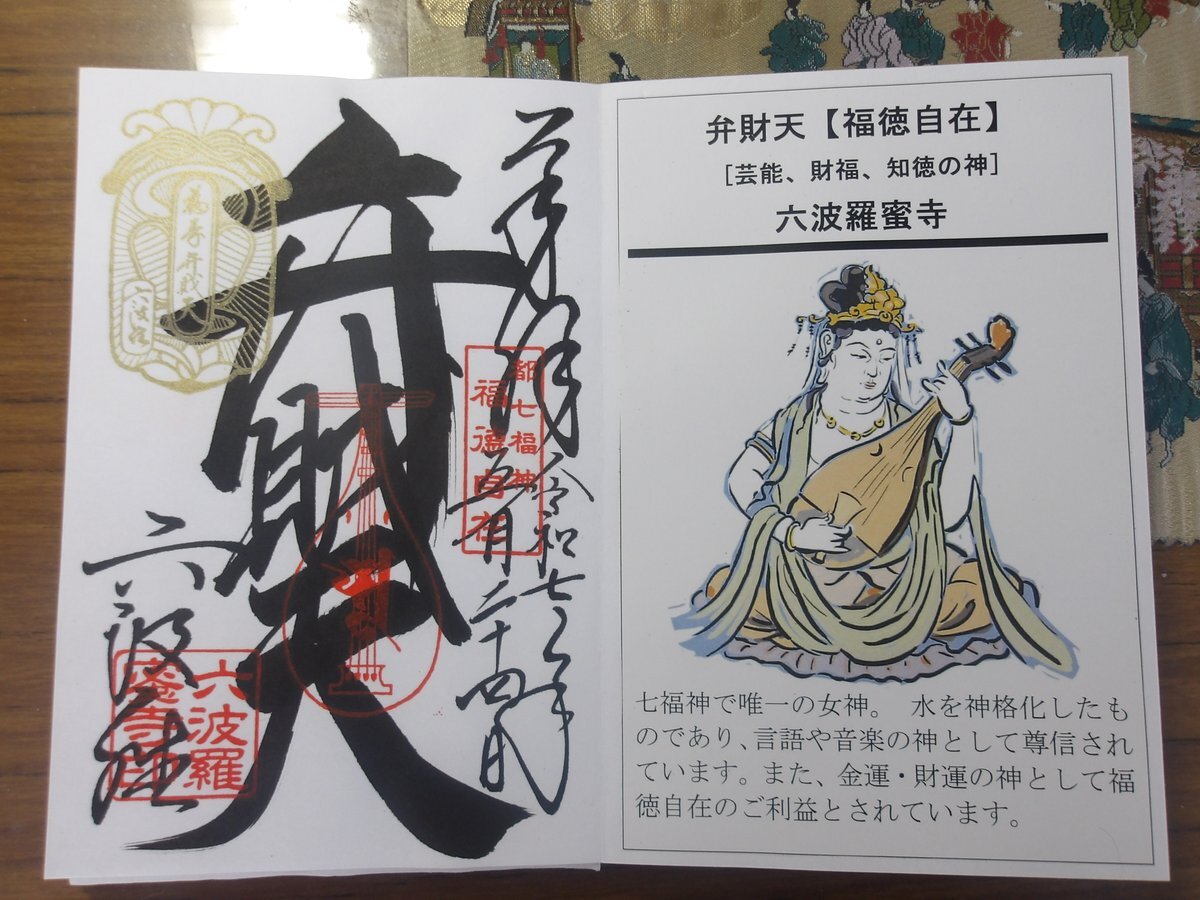 奉拝
令和七年
五月二十四日
都七福神
福徳自在
弁財天
六波羅
蜜寺印
弁財天【福徳自在】
［芸能、財福、知徳の神］
六波羅蜜寺
七福神で唯一の女神。 水を神格化したも
のであり、言語や音楽の神として尊信され
ています。また、金運・財運の神として福
徳自在のご利益とされています。